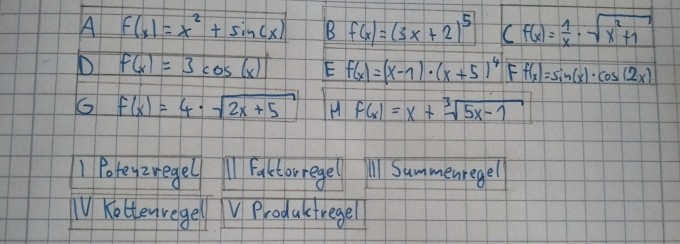 A f(x) = x² + sin(x) B f(x) = (3x + 2)⁵ C f(x) = 1/x · √(x² + 1)
D f(x) = 3 cos(x) E f(x) = (x-1) · (x+5)⁴ F f(x) = sin(x) · cos(2x)
G f(x) = 4 · √(2x + 5) H f(x) = x + ³√(5x - 1)
I Potenzregel II Faktorregel III Summenregel
IV Kettenregel V Produktregel